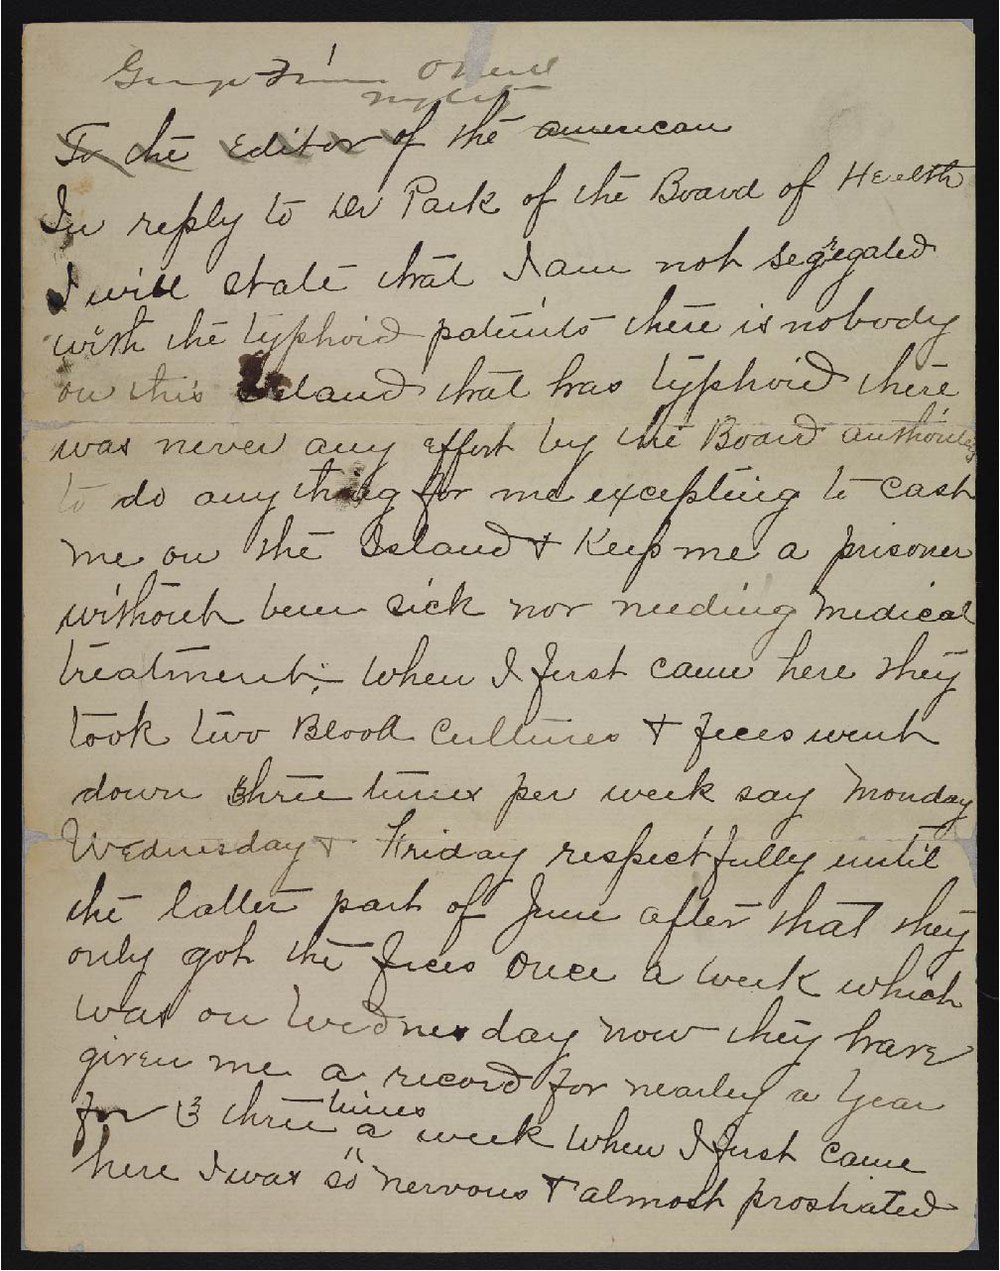 George Francis O'Neill
To the Editor of the american
In reply to Dr Park of the Board of Health
I will state that I am not segregated
with the typhoid patients there is nobody
on this Island that has typhoid there
was never any effort by the Board authority
to do any thing for me excepting to cast
me on the Island & Keep me a prisoner
without been sick nor needing medical
treatment. When I first came here they
took two Blood Cultures & feces went
down 3hree times per week say Monday
Wednesday & Friday respectfully until
the latter part of June after that they
only got the feces once a week which
was on Wednesday now they have
given me a record for nearly a year
for 3 three times a week When I first came
here I was so nervous & almost prostrated